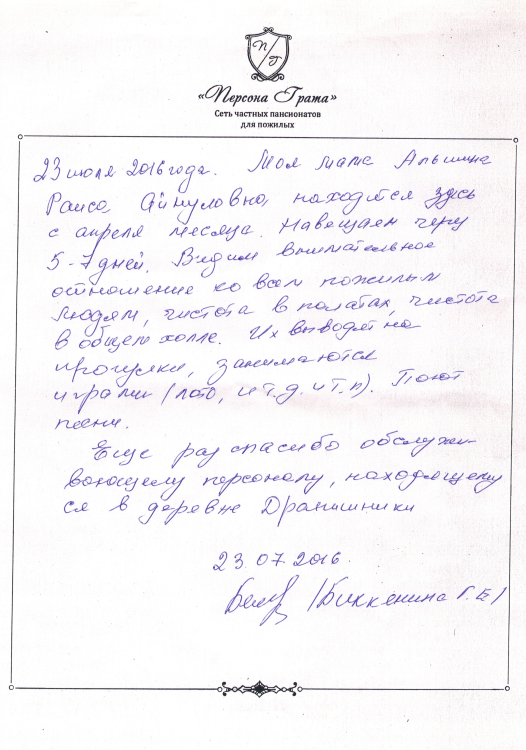 П
Г
«Персона Грата»
Сеть частных пансионатов
для пожилых
23 июля 2016 года. Моя мама Альшина
Раиса Айнуловна, находится здесь
с апреля месяца. Навещаем через
5-7 дней. Видим внимательное
отношение ко всем пожилым
людям, чистота в полатах, чистота
в общем холле. Их выводят на
прогулки, занимаются
играми (лото, и т.д. и т.п). Поют
песни.
Еще раз спасибо обслужи-
вающему персоналу, находящему
ся в деревне Дранишники
23.07.2016.
(Биккенина Г.Е)